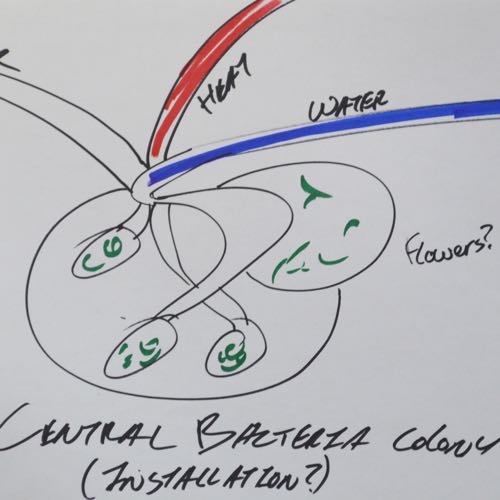 HEAT
WATER
Flowers?
CENTRAL BACTERIA COLONY
(INSTALLATION?)